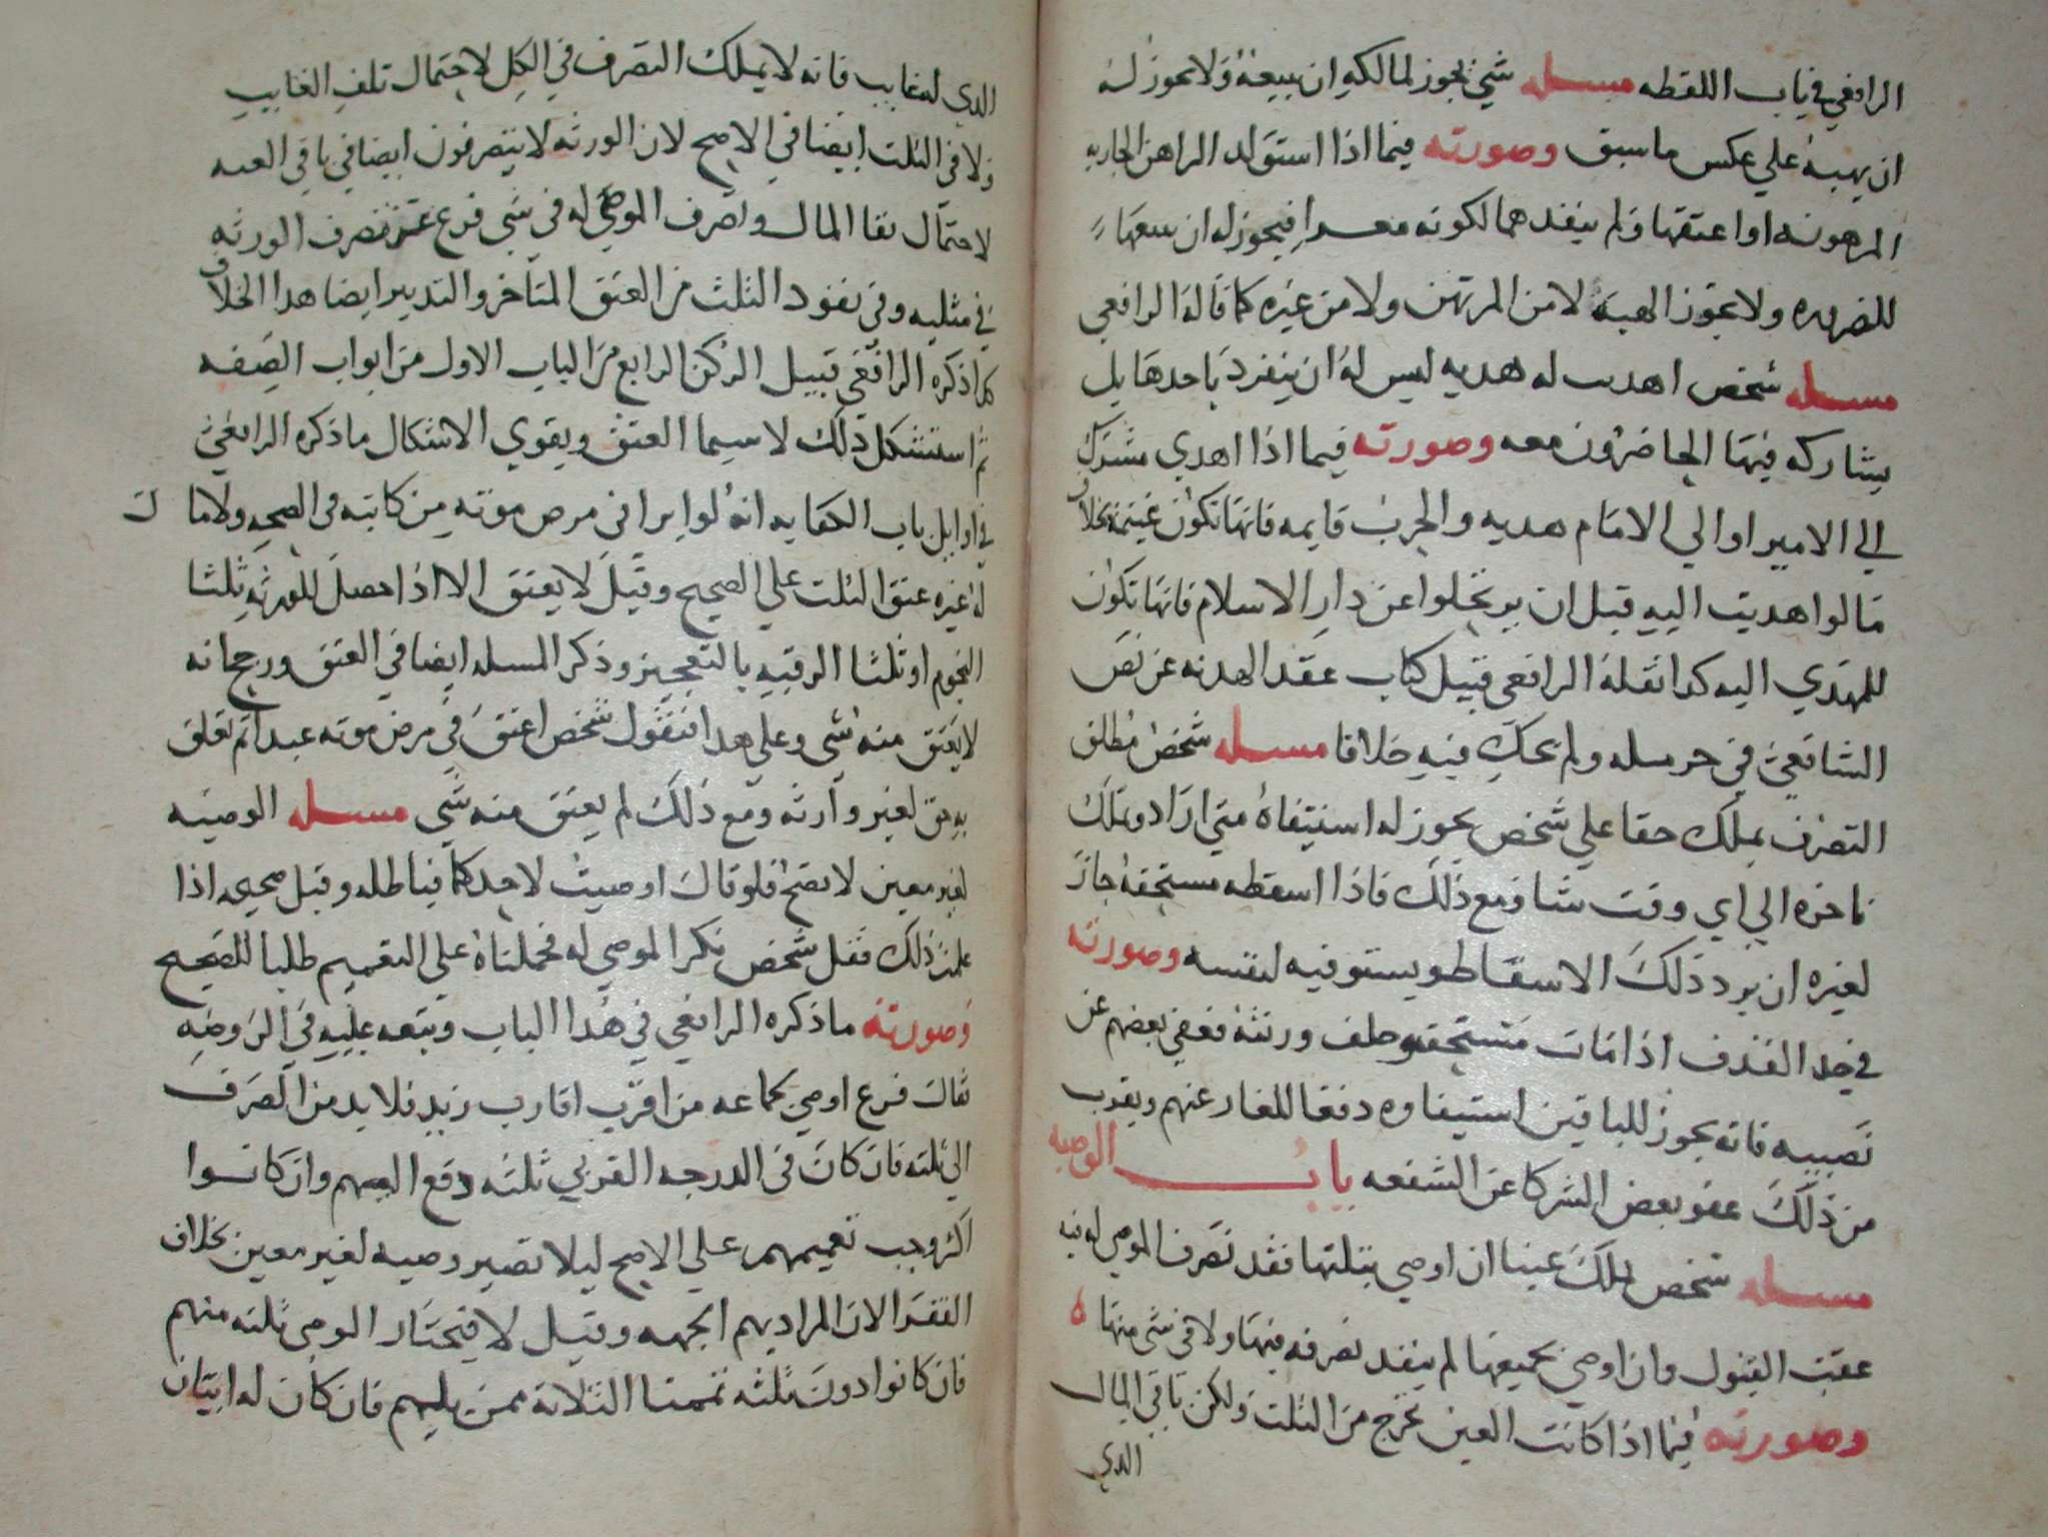 الرافعي في باب اللقطه مسله شي يجوز لمالكه ان يبيعه ولا يجوز له
ان يهبه علي عكس ما سبق وصورته فيما اذا استولد الراهن الجاريه
المرهونه او اعتقها ولم ينفذهما لكونه معسرا فيجوز له ان يبيعها
للضروره ولا تجوز الهبه لا من المرتهن ولا من غيره كما قاله الرافعي
مسله شخص اهديت له هديه ليس له ان ينفرد باخدها بل
يشاركه فيها الحاضرون معه وصورته فيما اذا اهدي مشرك
الي الامير او الي الامام هديه والحرب قايمه فانها تكون غنيمه بخلاف
ما لو اهديت اليه قبل ان يرتحلوا عن دار الاسلام فانها تكون
للمهدي اليه كدا نقله الرافعي قبيل كتاب عقد الهدنه عن نص
الشافعي في حرمله ولم يحك فيه خلافا مسله شخص مطلق
التصرف يملك حقا علي شخص يجوز له استيفاه متي اراد ويملك
تاخره الي اي وقت شا ومع ذلك فاذا اسقطه مستحقه جاز
لغيره ان يرد ذلك الاسقاط ويستوفيه لنفسه وصورته
في حد القذف اذا مات مستحقه وخلف ورثته فعفي بعضهم عن
نصيبه فانه يجوز للباقين استيفاوه دفعا للعار عنهم ويقرب
من ذلك عفو بعض الشركا عن الشفعه باب الوصيه
مسله شخص يملك عينا ان اوصي بثلثها نفد تصرف الموصي له فيه
عقب القبول وان اوصي بجميعها لم ينفد تصرفه فيها ولا في شي منها ه
وصورته فيما اذا كانت العين تخرج من الثلث ولكن باقي المال
الدي
الدي له غايب فانه لا يملك التصرف في الكل لاحتمال تلف الغايب
ولا في الثلث ايضا في الاصح لان الورثه لا يتصرفون ايضا في باقي العين
لاحتمال بقا المال وتصرف الموصي له في شي فرع عن تصرف الورثه
في مثليه وفي نفود الثلث من العتق المتاخر والتدبير ايضا هدا الخلاف
كما ذكره الرافعي قبيل الركن الرابع من الباب الاول من ابواب الصفه
ثم استشكل ذلك لا سيما العتق ويقوي الاشكال ما ذكره الرافعي
في اوايل باب الكتابه انه لو ابرا في مرض موته من كاتبه في الصحه ولا مال
له غيره عتق الثلث علي الصحيح وقيل لا يعتق الا اذا حصل للورثه ثلثا
النجوم او ثلثا الرقبه بالتعجيز وذكر المسله ايضا في العتق ورجح انه
لا يعتق منه شي وعلي هدا فنقول شخص اعتق في مرض موته عبدا لم تعلق
به حق لغير وارثه ومع ذلك لم يعتق منه شي مسله الوصيه
لغير معين لا تصح فلو قال اوصيت لاحدكما فباطله وقيل صحيحه اذا
علمت ذلك فقل شخص نكر الموصي له فحملناه علي التعميم طلبا للصحيح
وصورته ما ذكره الرافعي في هدا الباب وتبعه عليه في الروضه
فقال فرع اوصي لجماعه من اقرب اقارب زيد فلا بد من الصرف
الي ثلثه فان كان في الدرجه القربي ثلثه دفع اليهم وان كانوا
اكثر وجب تعميمهم علي الاصح ليلا تصير وصيه لغير معين بخلاف
الفقرا لان المراد بهم الجهه وقيل لا فيختار الوصي ثلثه منهم
فان كانوا دون ثلثه تممنا الثلاثه ممن يليهم فان كان له ابنان